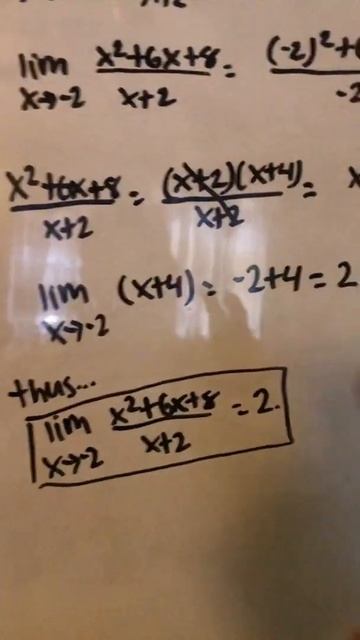 lim x→-2 (x²+6x+8)/(x+2) = (-2)²+6 / -2
(x²+6x+8)/(x+2) = (x+2)(x+4)/(x+2) = x
lim x→-2 (x+4) = -2+4 = 2
thus...
lim x→-2 (x²+6x+8)/(x+2) = 2.